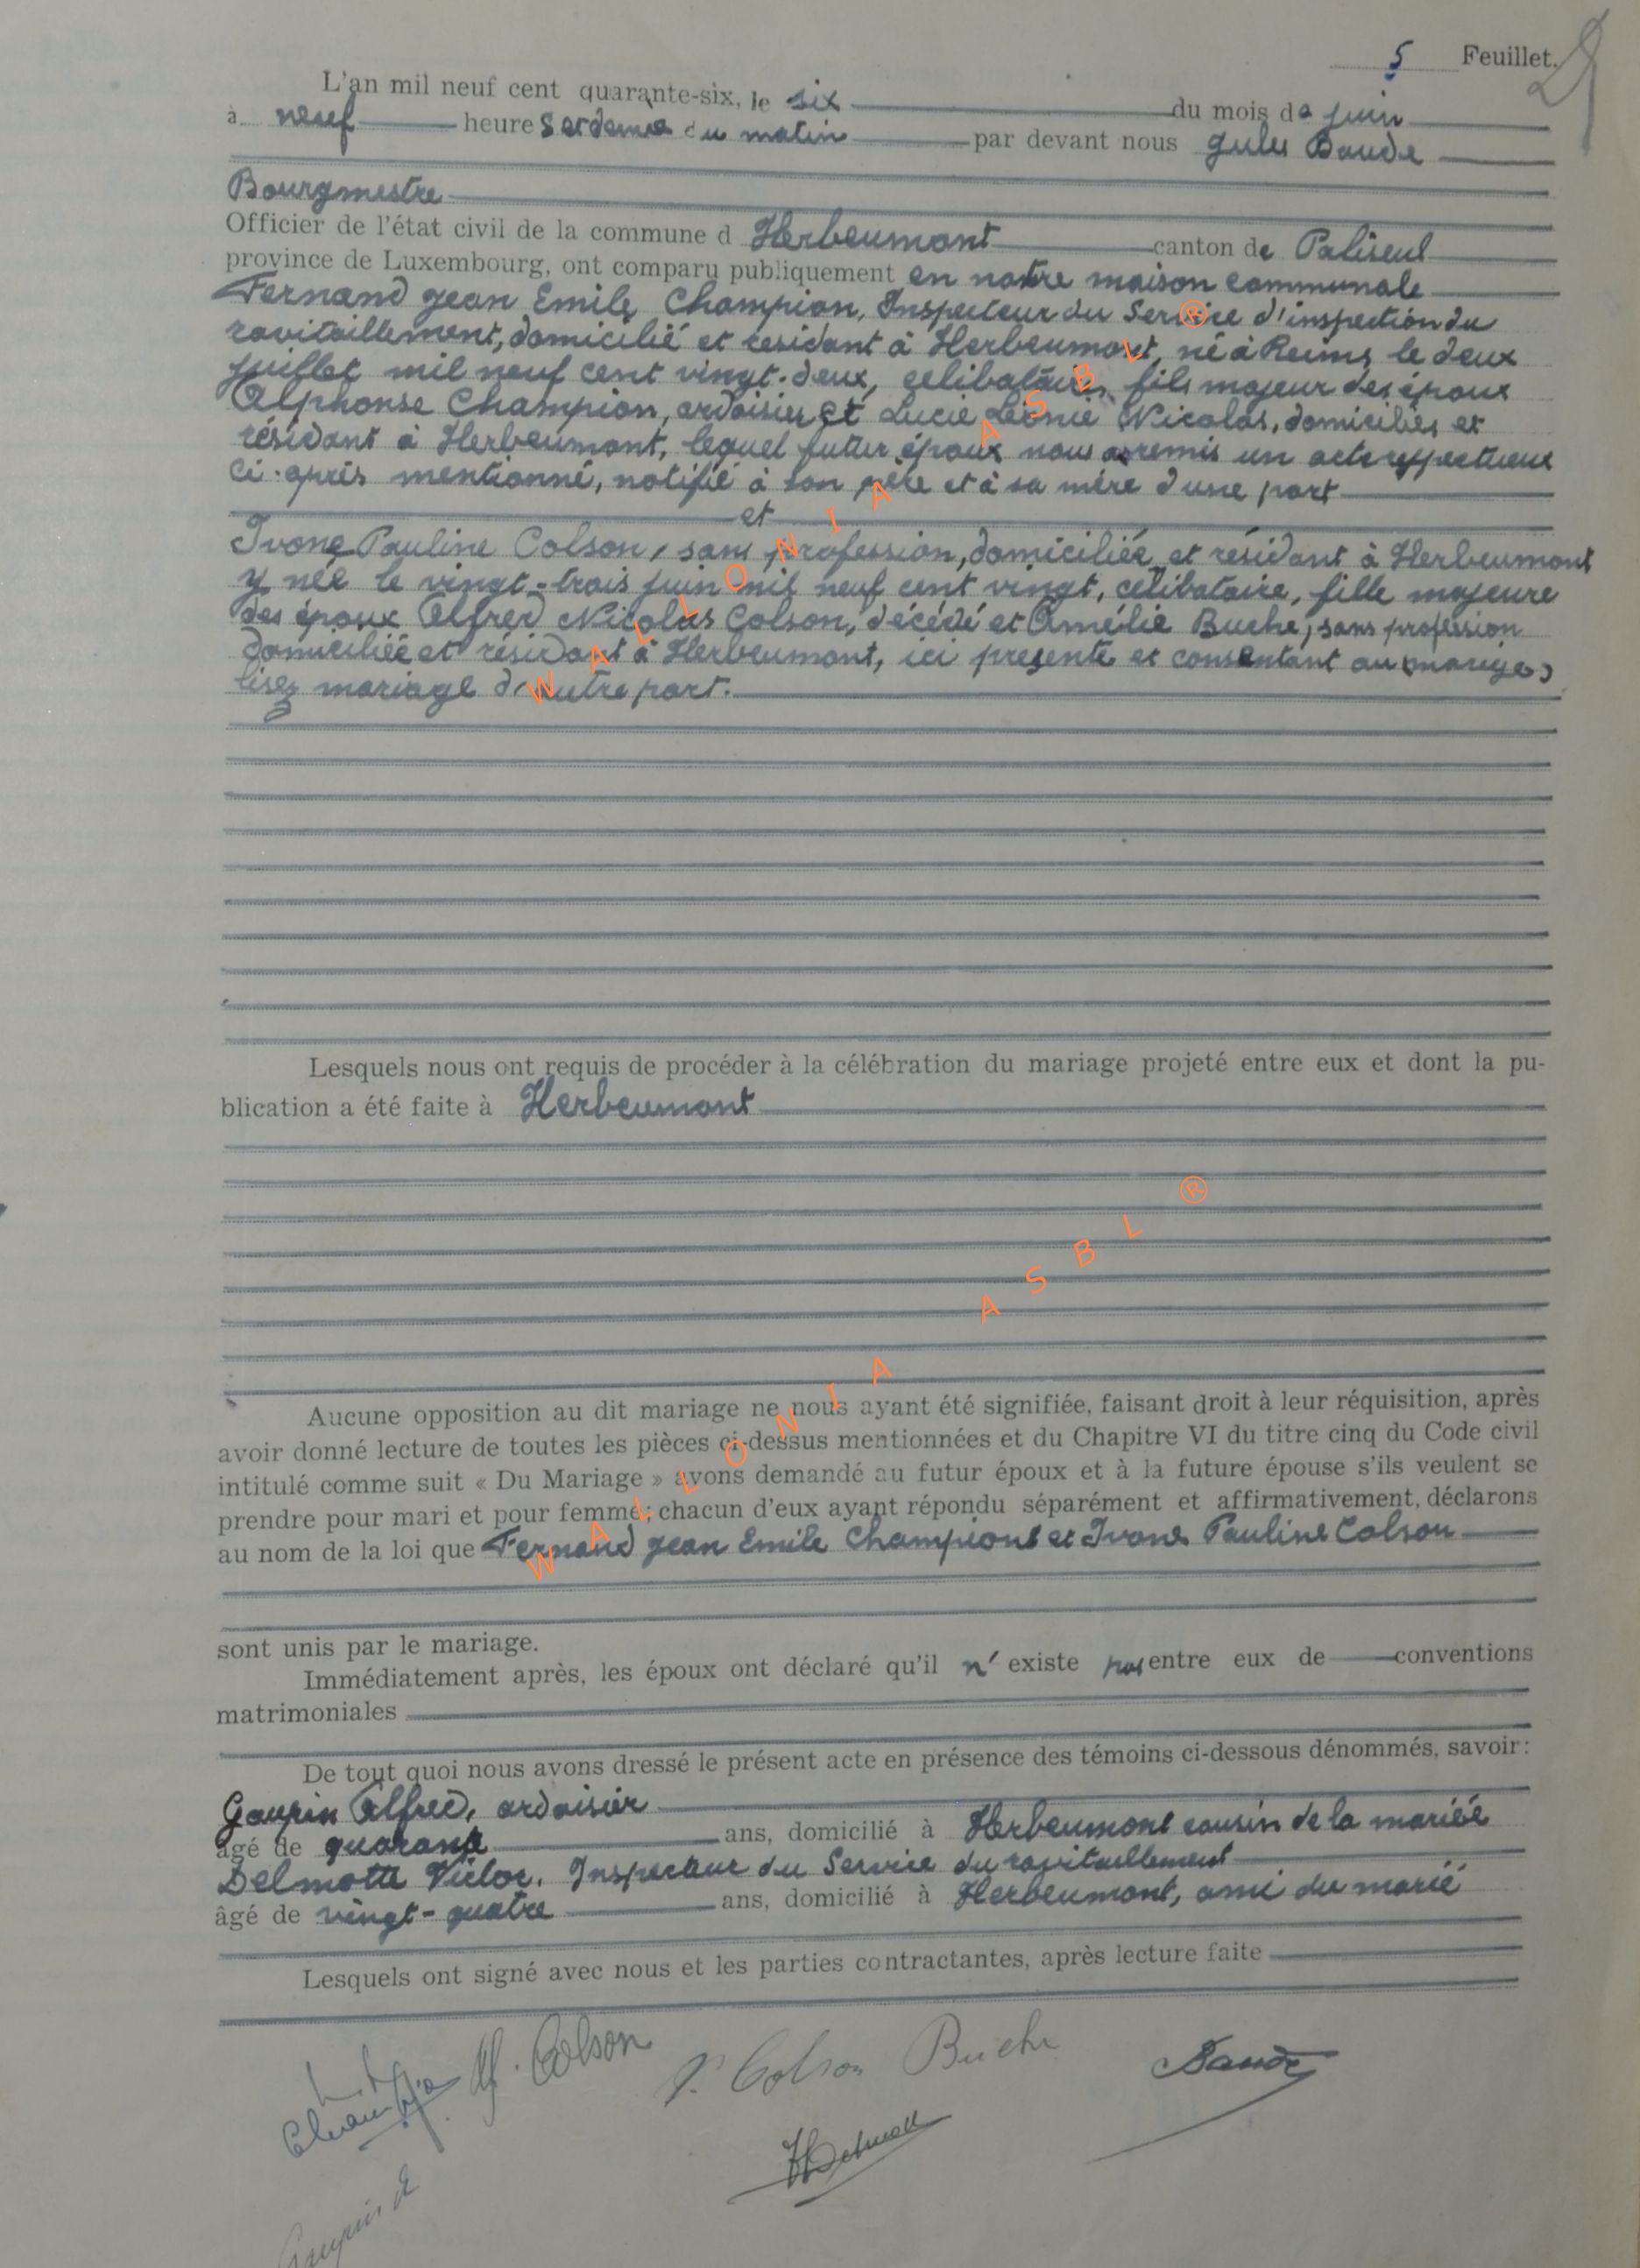 5 Feuillet.
L'an mil neuf cent quarante-six, le six du mois de juin
à neuf heures et demie du matin par devant nous Jules Baude
Bourgmestre
Officier de l'état civil de la commune d Herbeumont canton de Paliseul
province de Luxembourg, ont comparu publiquement en notre maison communale
Fernand Jean Emile Champion, Inspecteur du Service d'inspection du
ravitaillement, domicilié et résidant à Herbeumont, né à Reims le deux
juillet mil neuf cent vingt-deux, célibataire, fils majeur des époux
Alphonse Champion, ardoisier et Lucie Léonie Nicolas, domiciliés et
résidant à Herbeumont, lequel futur époux nous a remis un acte respectueux
ci-après mentionné, notifié à son père et à sa mère d'une part
et
Ivone Pauline Colson, sans profession, domiciliée et résidant à Herbeumont
y née le vingt-trois juin mil neuf cent vingt, célibataire, fille majeure
des époux Alfred Nicolas Colson, décédé et Amélie Buche, sans profession
domiciliée et résidant à Herbeumont, ici présente et consentant au (marige)
lisez mariage d'autre part.
Lesquels nous ont requis de procéder à la célébration du mariage projeté entre eux et dont la pu-
blication a été faite à Herbeumont
Aucune opposition au dit mariage ne nous ayant été signifiée, faisant droit à leur réquisition, après
avoir donné lecture de toutes les pièces ci-dessus mentionnées et du Chapitre VI du titre cinq du Code civil
intitulé comme suit « Du Mariage » avons demandé au futur époux et à la future épouse s'ils veulent se
prendre pour mari et pour femme; chacun d'eux ayant répondu séparément et affirmativement, déclarons
au nom de la loi que Fernand Jean Emile Champion et Ivone Pauline Colson
sont unis par le mariage.
Immédiatement après, les époux ont déclaré qu'il n' existe pas entre eux de conventions
matrimoniales
De tout quoi nous avons dressé le présent acte en présence des témoins ci-dessous dénommés, savoir:
Goupin Alfred, ardoisier
âgé de quarante ans, domicilié à Herbeumont cousin de la mariée
Delmotte Victor, Inspecteur du Service du ravitaillement
âgé de vingt-quatre ans, domicilié à Herbeumont, ami du marié
Lesquels ont signé avec nous et les parties contractantes, après lecture faite
Champion Colson Colson Buche Baude
Delmott
WALLONIA ASBL ®
WALLONIA ASBL ®